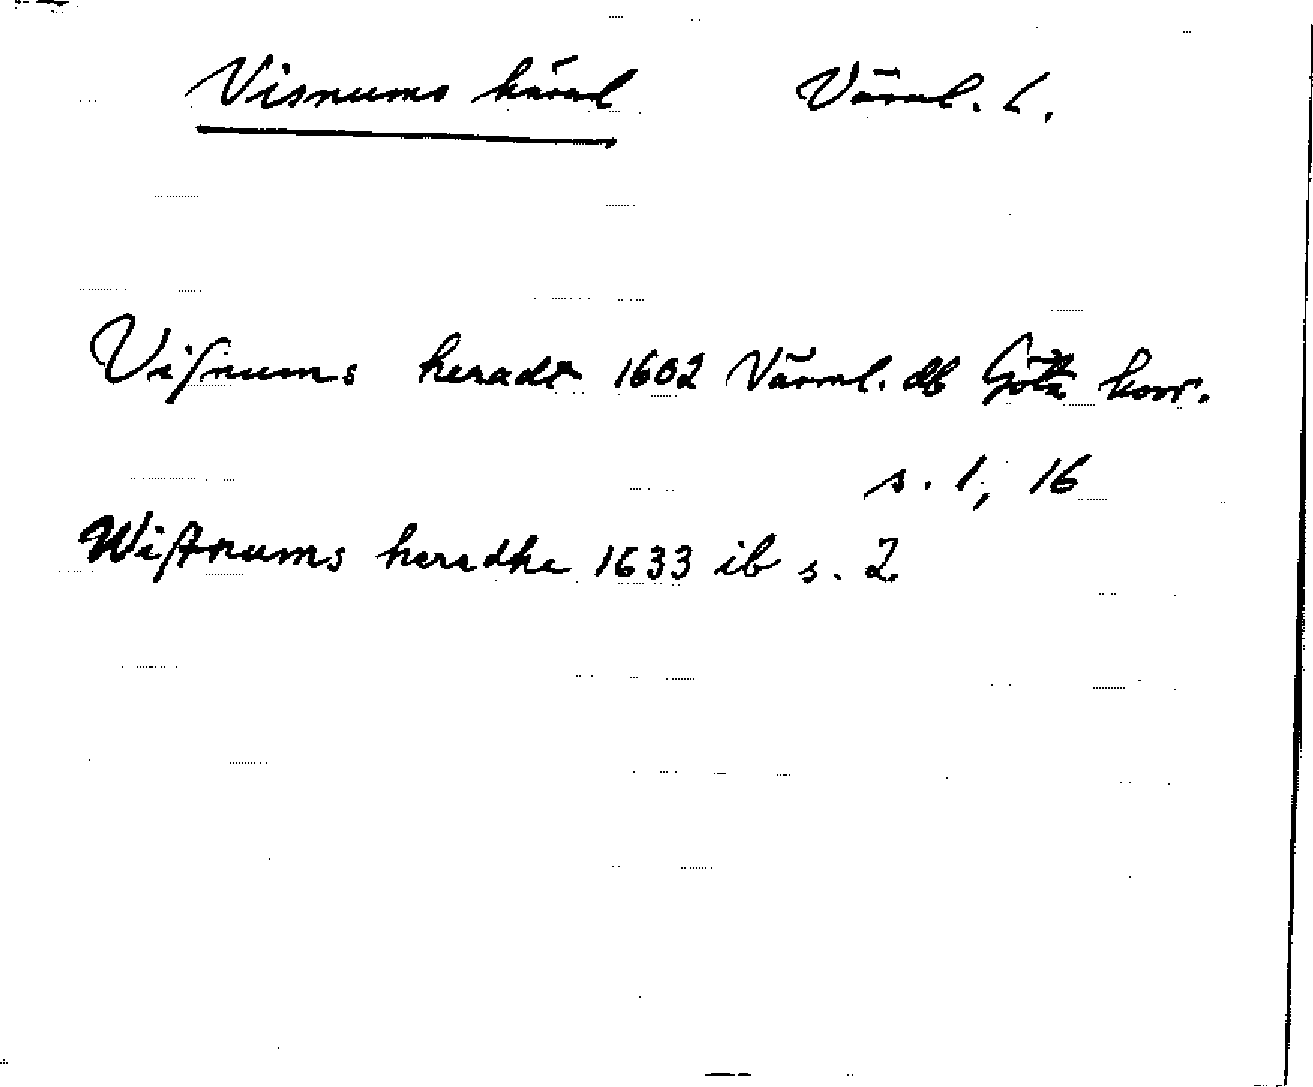 Visnums härad Värml. l.
Viſnums heradt 1602 Värml. db Göta hovr.
s. 1, 16
Wiſtnums heradhe 1633 ib s. 2